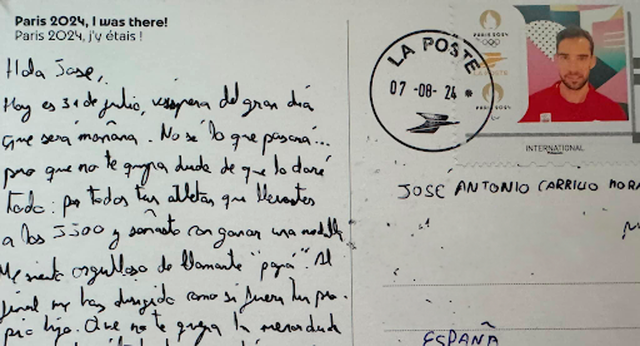 Paris 2024, I was there!
Paris 2024, j'y étais !
Hola Jose,
Hoy es 31 de julio, vispera del gran día
que será mañana. No sé lo que pasará...
pero que no te quepa duda de que lo daré
todo: por todos tus atletas que llevastes
a los JJOO y soñaste con ganar una medalla
Me siento orgulloso de llamarte "papá". Al
final me has dirigido como si fuera tu pro-
pio hijo. Que no te quepa la menor duda
LA POSTE
07-08-24 *
PARIS 2024
LA POSTE
PARIS 2024
INTERNATIONAL
JOSÉ ANTONIO CARRILLO MORA
ESPAÑA